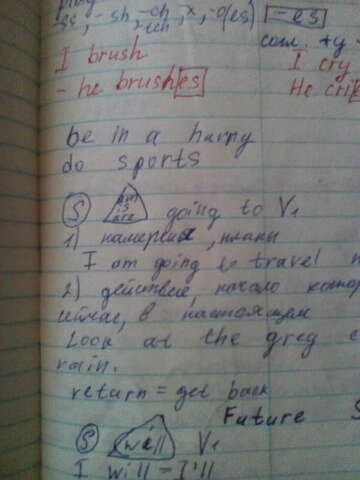 ss, -sh, -ch, x, -o(es) -es
I brush
- he brushes
con. +y
I cry
He cri
be in a hurry
do sports
S am is are going to V1
1) намерения, планы
I am going to travel
2) действие, начало
в настоящем
Look at the grey
rain.
return = get back
Future
S will V1
I will = I'll